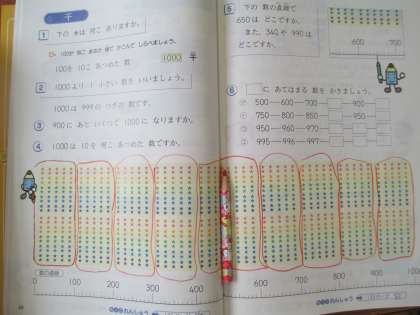 千
1 下の ●は 何こ ありますか。
100が 何こ あるか 線で かこんで しらべましょう。
100を 10こ あつめた 数 1000 千
2 1000より 1 小さい 数を いいましょう。
1000は 999の つぎの 数です。
3 900に あと いくつで 1000に なりますか。
4 1000は 10を 何こ あつめた 数ですか。
数の直線
0 100 200 300 400
5 下の 数の直線で
650は どこですか。
また、340や 990は
どこですか。
600 700
6 □に あてはまる 数を かきましょう。
① 500-600-700-□-900-□
② 750-800-850-□-950-□
③ 950-960-970-□-□-□
④ 995-996-997-□-□-□
600 700 800 900 1000